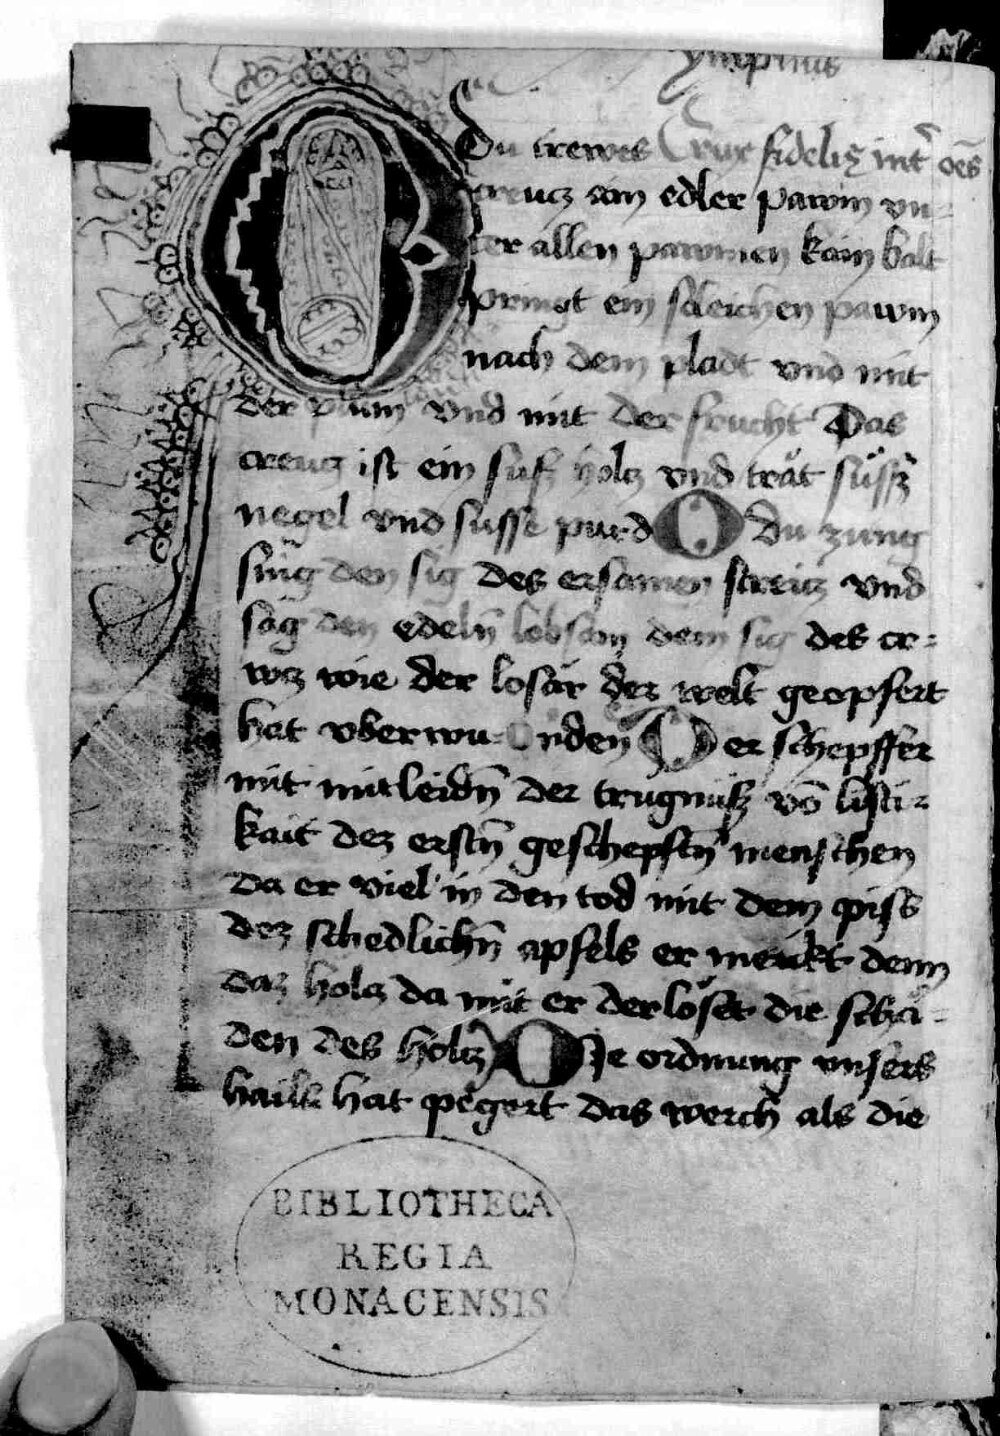 ympnus
O Du trewes Crux fidelis int̄ oēs
creucz ain edler pawm vn-
ter allen pawmen kain balt
pringt ein solichen pawm
nach dem pladt vnd mit
der plum vnd mit der frucht Das
creucz ist ein susz holcz vnd trăt sűssz
negel vnd susse purd O du zung
sing den sig des ersamen streitz vnd
sag den edelñ lobsam dem sig des cr-
wcz wie der losär dez welt geopfert
hat vberwu-nden Der schepffer
mit mitleidñ der trugnusz võ listi-
kait dez erstñ geschepftñ menschen
da er viel in den tod mit dem piss
dez schedlichñ apfels er merckt denn
daz holcz da mit er der löset die schä-
den des holcz Die ordnung vnsers
hails hat pegert das werch als die
BIBLIOTHECA
REGIA
MONACENSIS